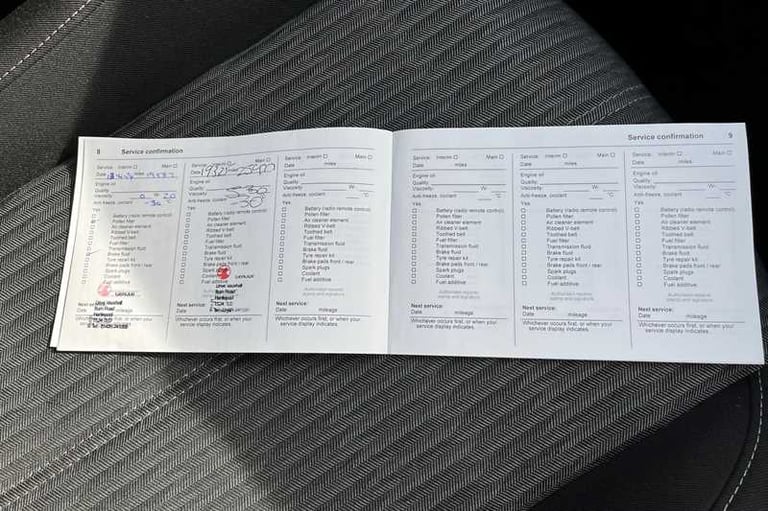 8 Service confirmation
Service: Interim Main
Date miles
Engine oil:
Quality:
Viscosity: 0 W- 20
Anti-freeze, coolant -36 °C
Yes
Battery (radio remote control)
Pollen filter
Air cleaner element
Ribbed V-belt
Toothed belt
Fuel filter
Transmission fluid
Brake fluid
Tyre repair kit
Brake pads front / rear
Spark plugs
Coolant
Fuel additive
Next service:
Date mileage
Whichever occurs first, or when your
service display indicates.
Main
Date miles
Engine oil:
Quality:
Viscosity: 5-30
Anti-freeze, coolant -30
Yes
Battery (radio remote control)
Pollen filter
Air cleaner element
Ribbed V-belt
Toothed belt
Fuel filter
Transmission fluid
Brake fluid
Tyre repair kit
Brake pads front / rear
Spark
Coolant
Fuel additive
Next service:
Date
Whichever occurs first, or when your
service display indicates.
Service: Interim Main
Date miles
Engine oil:
Quality:
Viscosity: W-
Anti-freeze, coolant °C
Yes
Battery (radio remote control)
Pollen filter
Air cleaner element
Ribbed V-belt
Toothed belt
Fuel filter
Transmission fluid
Brake fluid
Tyre repair kit
Brake pads front / rear
Spark plugs
Coolant
Fuel additive
Next service:
Date mileage
Whichever occurs first, or when your
service display indicates.
Service confirmation 9
Service: Interim Main
Date miles
Engine oil:
Quality:
Viscosity: W-
Anti-freeze, coolant °C
Yes
Battery (radio remote control)
Pollen filter
Air cleaner element
Ribbed V-belt
Toothed belt
Fuel filter
Transmission fluid
Brake fluid
Tyre repair kit
Brake pads front / rear
Spark plugs
Coolant
Fuel additive
Next service:
Date mileage
Whichever occurs first, or when your
service display indicates.
Service: Interim Main
Date miles
Engine oil:
Quality:
Viscosity: W-
Anti-freeze, coolant °C
Yes
Battery (radio remote control)
Pollen filter
Air cleaner element
Ribbed V-belt
Toothed belt
Fuel filter
Transmission fluid
Brake fluid
Tyre repair kit
Brake pads front / rear
Spark plugs
Coolant
Fuel additive
Next service:
Date mileage
Whichever occurs first, or when your
service display indicates.
Service: Interim Main
Date miles
Engine oil:
Quality:
Viscosity: W-
Anti-freeze, coolant °C
Yes
Battery (radio remote control)
Pollen filter
Air cleaner element
Ribbed V-belt
Toothed belt
Fuel filter
Transmission fluid
Brake fluid
Tyre repair kit
Brake pads front / rear
Spark plugs
Coolant
Fuel additive
Next service:
Date mileage
Whichever occurs first, or when your
service display indicates.